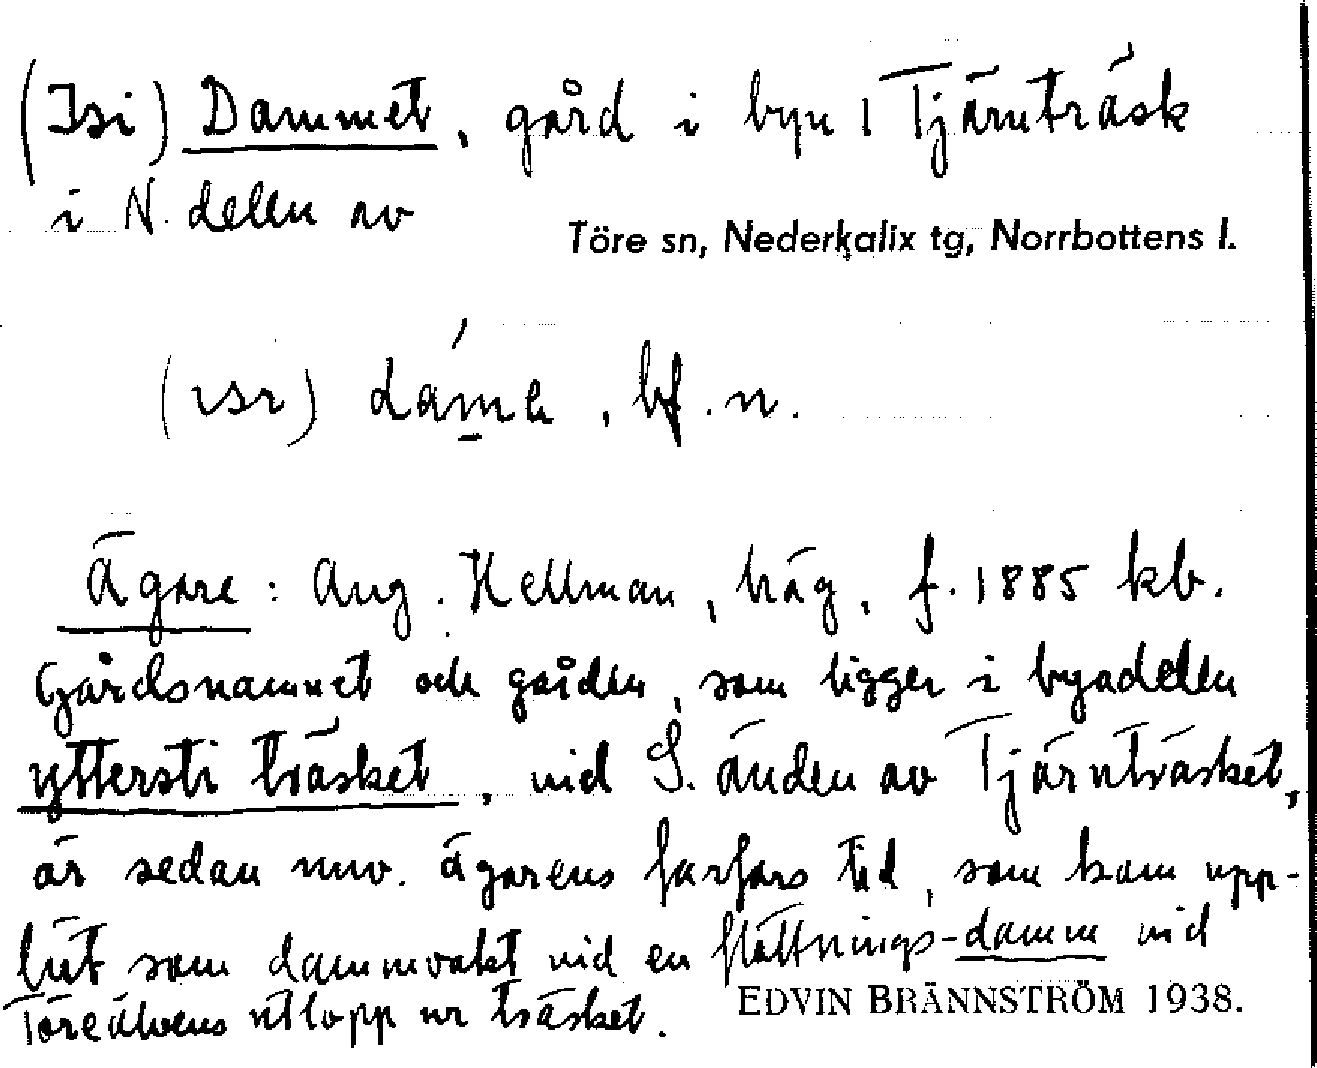 (Isi) Dammet, gård i byn Tjärnträsk
i N. delen av
Töre sn, Nederkalix tg, Norrbottens l.
bf. n.
Ägare: Aug. Hellman, häg, f. 1885 kb.
Gårdsnamnet och gården, som ligger i byadelen
yttersti träsket, vid S. änden av Tjärnträsket,
är sedan nuv. ägarens farfars tid, som kom upp-
lüt som dammvakt vid en flottnings-damm vid
Töreälvens utlopp ur träsket.
EDVIN BRÄNNSTRÖM 1938.